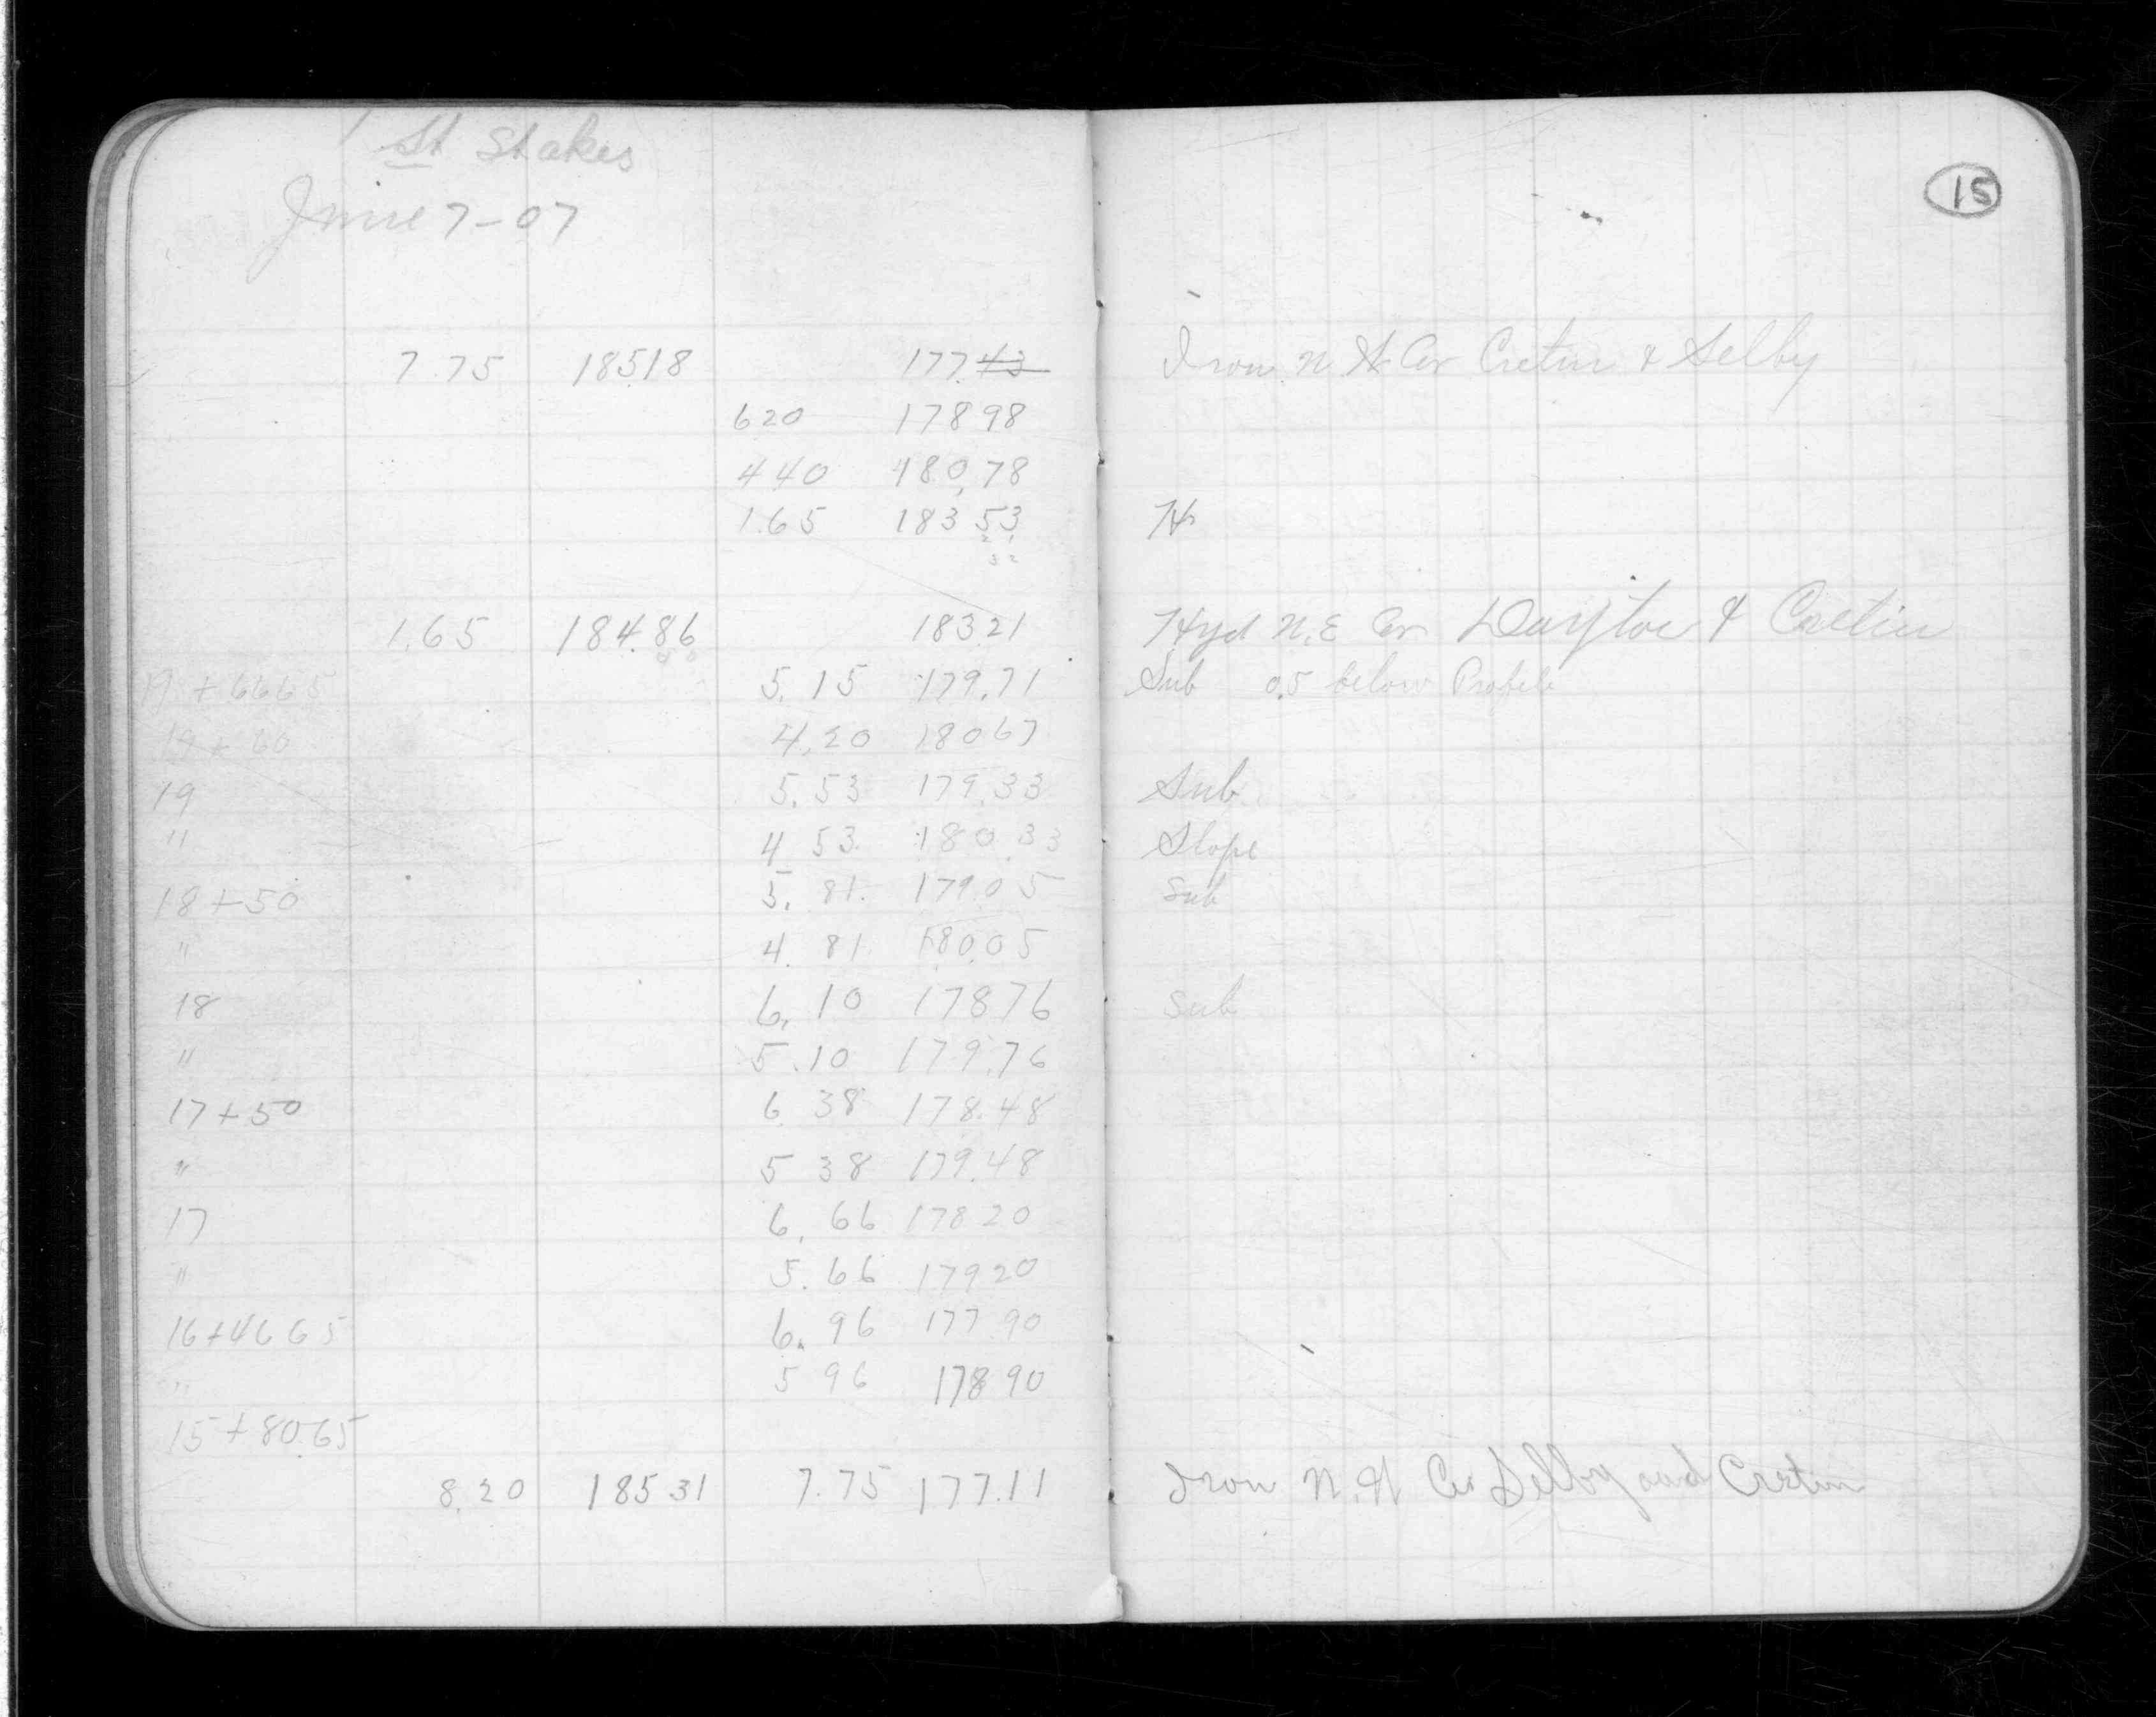 St Stakes
June 7-07
15
7.75 185.18 177.43 Iron N.W. Cor Cretin & Selby
620 178 98
440 180.78
1.65 183 53 H
1.65 184.86 183 21 Hyd N.E Cor Dayton & Cretin
19 + 6665 5.15 179.71 Sub 0.5 below Profile
19 + 60 4.20 180 67
19 5.53 179.33 Sub
" 4 53 180.33 Slope
18+50 5.81 179.05 Sub
" 4.81 180.05
18 6.10 178 76 Sub
" 5.10 179.76
17+50 6 38 178.48
" 5 38 179.48
17 6.66 178 20
" 5.66 179 20
16+46 65 6.96 177 90
" 5 96 178 90
15+80.65
8.20 185 31 7.75 177.11 Iron N.W Cor Selby and Cretin